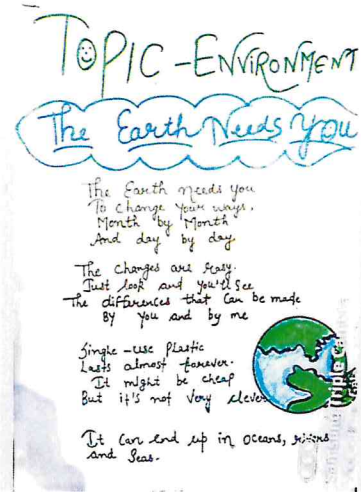 TOPIC - ENVIRONMENT
The Earth Needs You
The Earth needs you
To change your ways,
Month by Month
And day by day
The changes are easy.
Just look and you'll see
The differences that can be made
By you and by me
Single-use Plastic
Lasts almost forever.
It might be cheap
But it's not very clever
It can end up in oceans, rivers
and Seas.